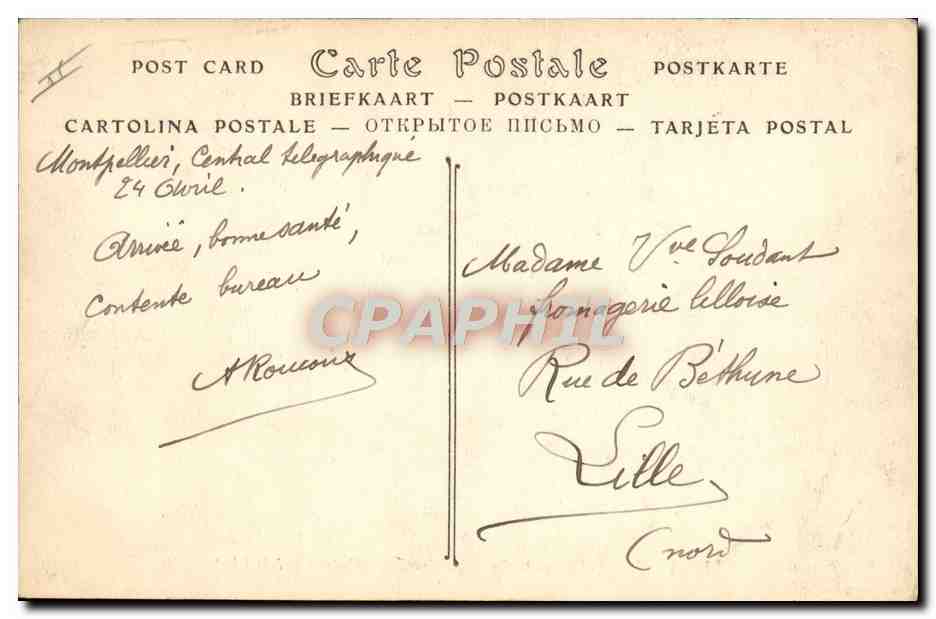 POST CARD Carte Postale POSTKARTE
BRIEFKAART — POSTKAART
CARTOLINA POSTALE — ОТКРЫТОЕ ПИСЬМО — TARJETA POSTAL
Montpellier, Central télégraphique
24 Avril.
Arrivée, bonne santé,
Contente bureau
Madame Vve Soudant
fromagerie lilloise
Rue de Béthune
Lille
(nord
CPAPHIL